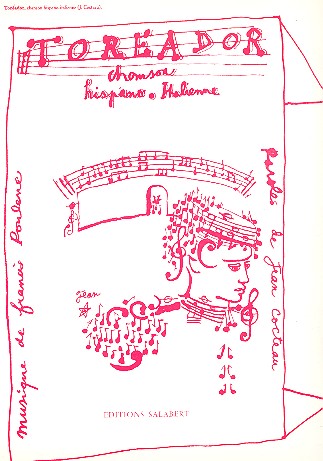 Toréador, chanson hispano-italienne (J. Cocteau).
TOREADOR
chanson
hispano-italienne
musique de francis Poulenc
Paroles de Jean Cocteau
Jean
EDITIONS SALABERT